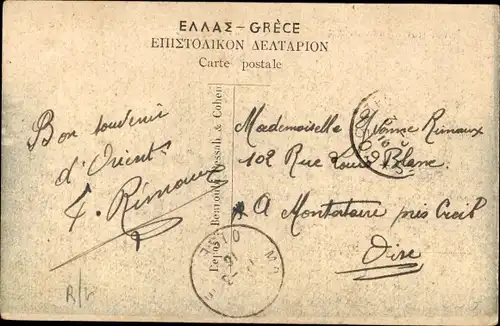 ΕΛΛΑΣ – GRÈCE
ΕΠΙΣΤΟΛΙΚΟΝ ΔΕΛΤΑΡΙΟΝ
Carte postale
Bon souvenir
d'Orient
F. Rimaux
Mademoiselle Yvonne Rimaux
102 Rue Louis Blanc.
A Montataire près Creil
Oise
Repos. Benroubi, Pessah & Cohen
R/V